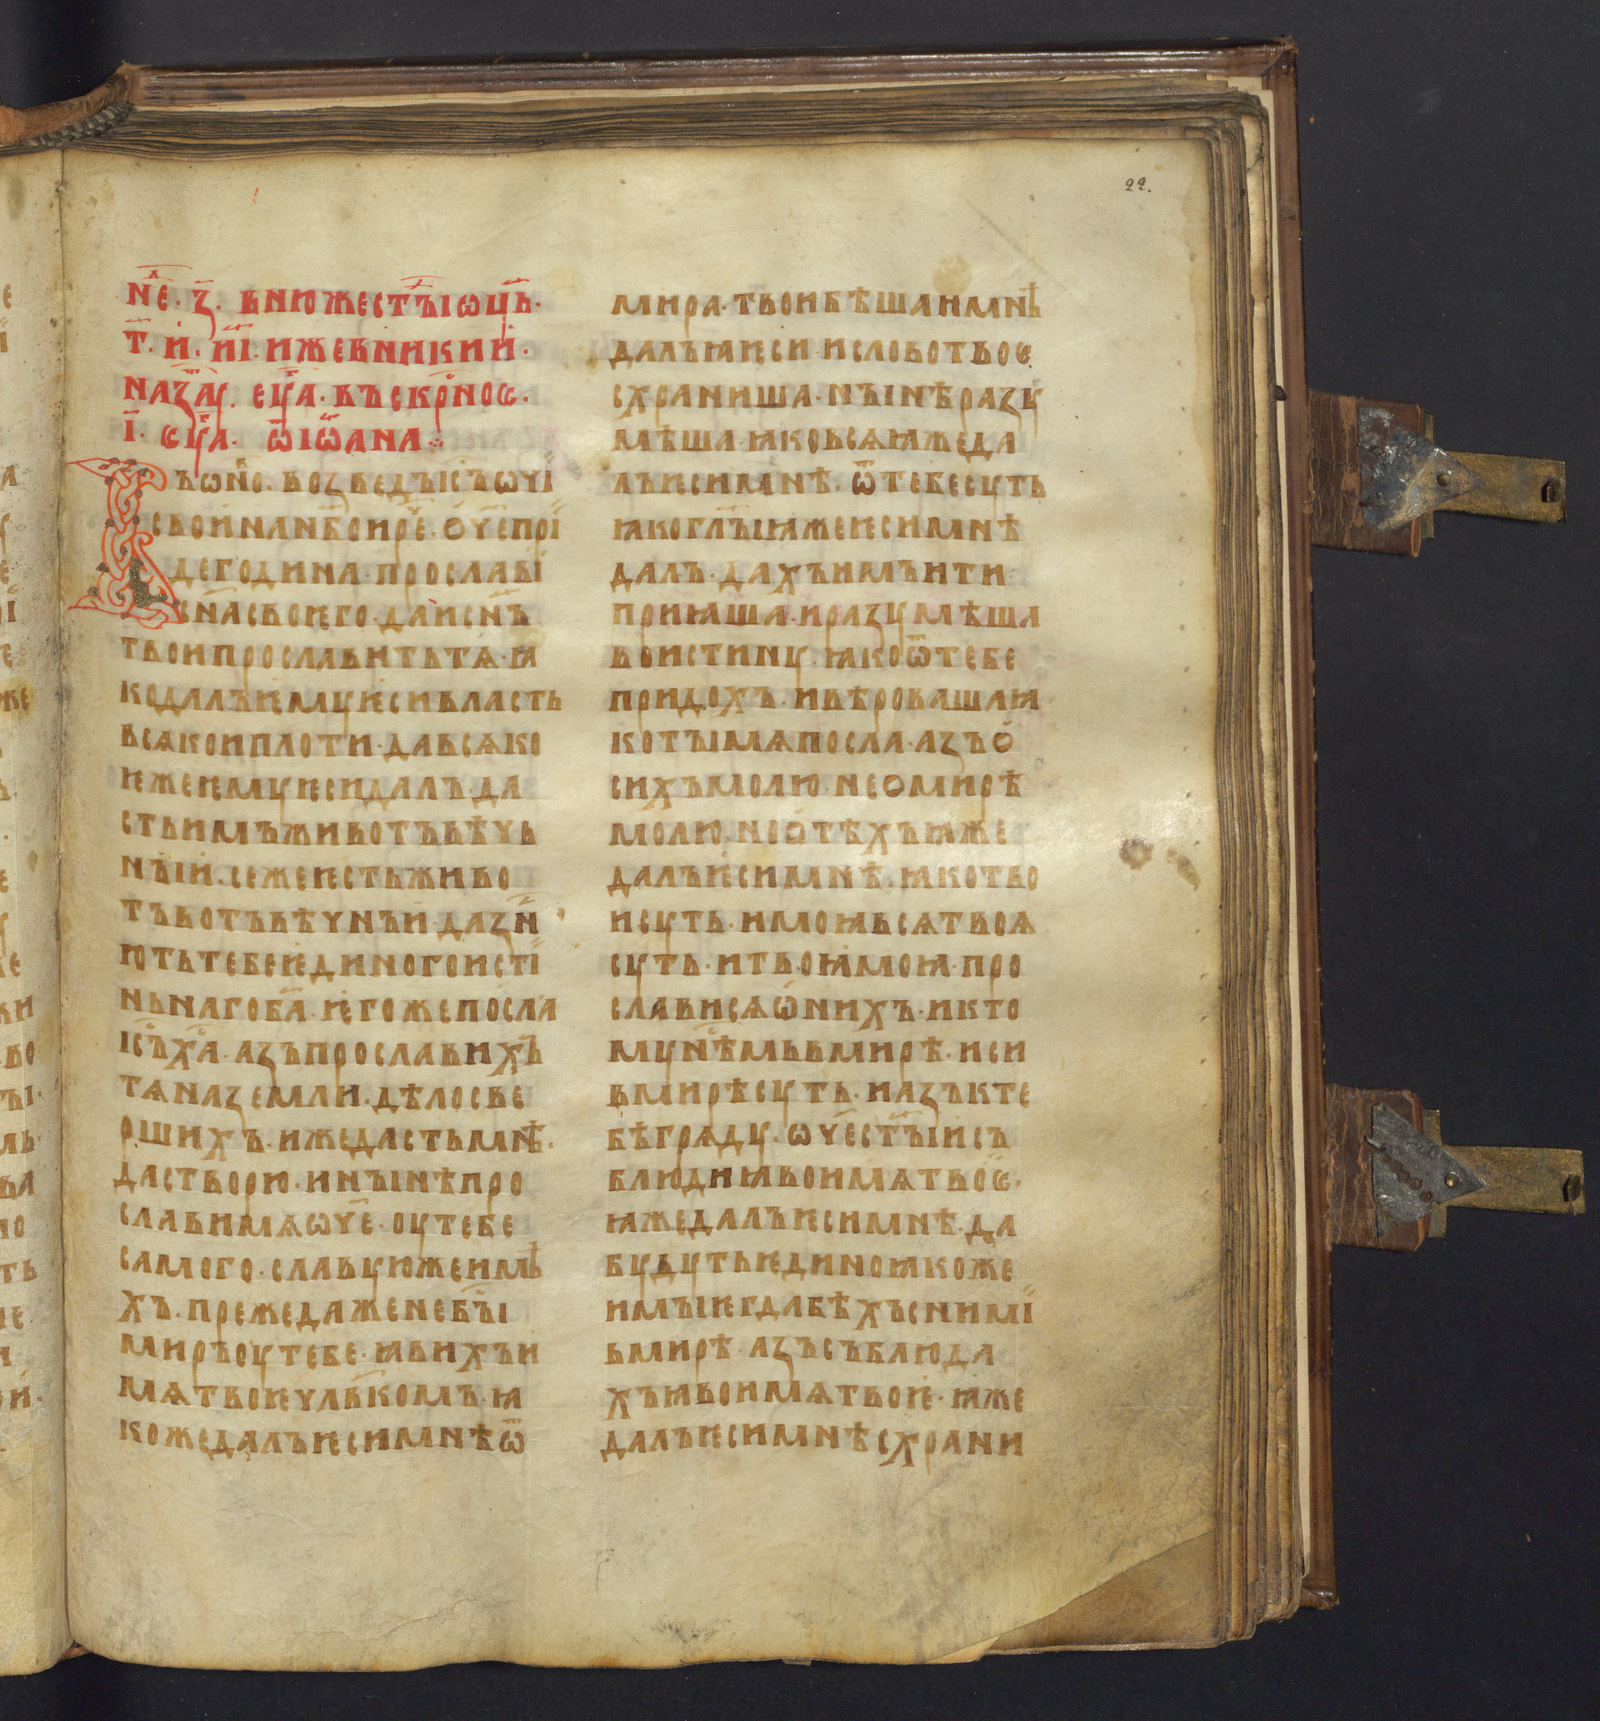 22.
не҃.з҃. в нюже ст҃ъıı ѡц҃ь.
т҃.и҃. иı҃. иже в никии.
наза҃р. еу҃а. въскрⷭ҇ное.
ı҃. еу҃а. ѿ ıѡана
Въ ѡно. возведъ ıс҃ъ ѡчı
свои на нб҃о и ре҃. ѻч҃е прı
де година. прославı
сн҃а своѥго. да и сн҃ъ
твои прославить тѧ. ꙗ
ко далъ ѥмꙋ ѥси власть
всѧкои плоти. да всѧко
ѥже ѥмꙋ ѥси далъ. да
сть имъ животъ вѣчь
нъıи. се же ѥсть живо
тъ вотъ вѣчнъи. да зн҃
ють тебе ѥдиного истı
ньнаго ба҃. ѥго же посла
ıс҃ъ ха҃. азъ прославихъ
тѧ на земли. дѣло све
рших. иже дасть мнѣ.
да створю. и нъıнѣ про
слави мѧ ѡч҃е. оу тебе
самого. славꙋ юже имѣ
хъ. преже даже не бъı
миръ оу тебе. ꙗвихъ и
мѧ твоѥ чл҃вкомъ. ꙗ
коже далъ ѥси мнѣ ѿ
мира. твои бѣша и мнѣ
далъ ꙗ ѥси. и слово твое
схраниша. нъıнѣ разꙋ
мѣша. ꙗко всѧ ꙗже да
лъ ѥси мнѣ. ѿ тебе сꙋть
ꙗко гл҃ъı ꙗже ѥси мнѣ
далъ. дахъ имъ и ти
приꙗша. и разꙋмѣша
воистинꙋ. ꙗко ѿ тебе
придохъ. и вѣроваша ꙗ
ко тъı мѧ посла. азъ ѻ
сихъ молю. не о мирѣ
молю. но ѻ тѣхъ ꙗже
далъ ѥси мнѣ. ꙗко тво
и сꙋть. и моꙗ всѧ твоѧ
сꙋть. и твоꙗ моꙗ. про
слависѧ ѡ нихъ. и к то
мꙋ нѣ҃мь в мирѣ. и си
в мирѣ сꙋть. и азъ к те
бѣ грѧдꙋ. ѡч҃е ст҃ъıи съ
блюди ꙗ во имѧ твое.
ꙗже далъ ѥси мнѣ. да
бꙋдꙋть ѥдино ꙗкоже
и мъı ѥгда бѣхъ с нимı
в мирѣ. азъ съблюда
хъ ꙗ во имѧ твоѥ. ꙗже
далъ ѥси мнѣ схрани